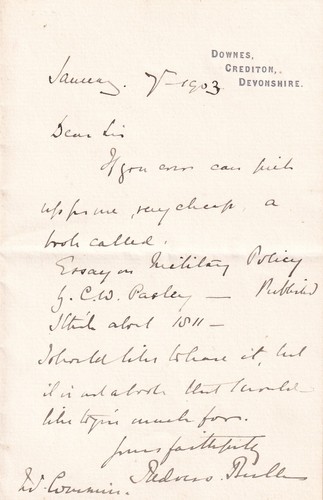 DOWNES,
CREDITON,
DEVONSHIRE.
January 7 - 1903
Dear Sir
If you ever can pick
up for me, very cheap, a
book called.
Essay on Military Policy
by C.W. Pasley — Published
I think about 1811 —
I should like to have it, but
it is not a book that I would
like to give much for.
Yours faithfully
Redvers Buller
Commin.